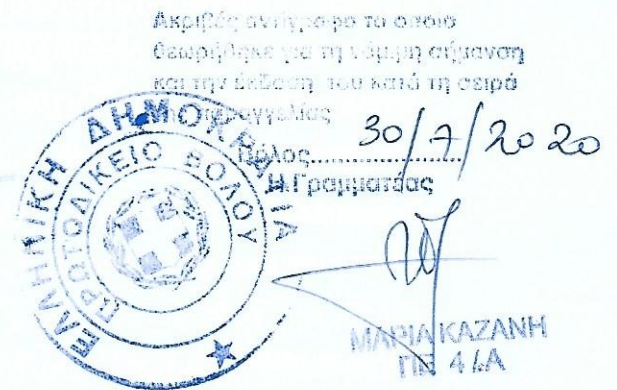 Ακριβές αντίγραφο το οποίο
θεωρήθηκε για τη νόμιμη σήμανση
και την έκδοση του κατά τη σειρά
παραγγελίας
Βόλος..................... 30/7/2020
Η Γραμματέας
ΕΛΛΗΝΙΚΗ ΔΗΜΟΚΡΑΤΙΑ
ΠΡΩΤΟΔΙΚΕΙΟ ΒΟΛΟΥ
ΜΑΡΙΑ ΚΑΖΑΝΗ
ΠΕ 4